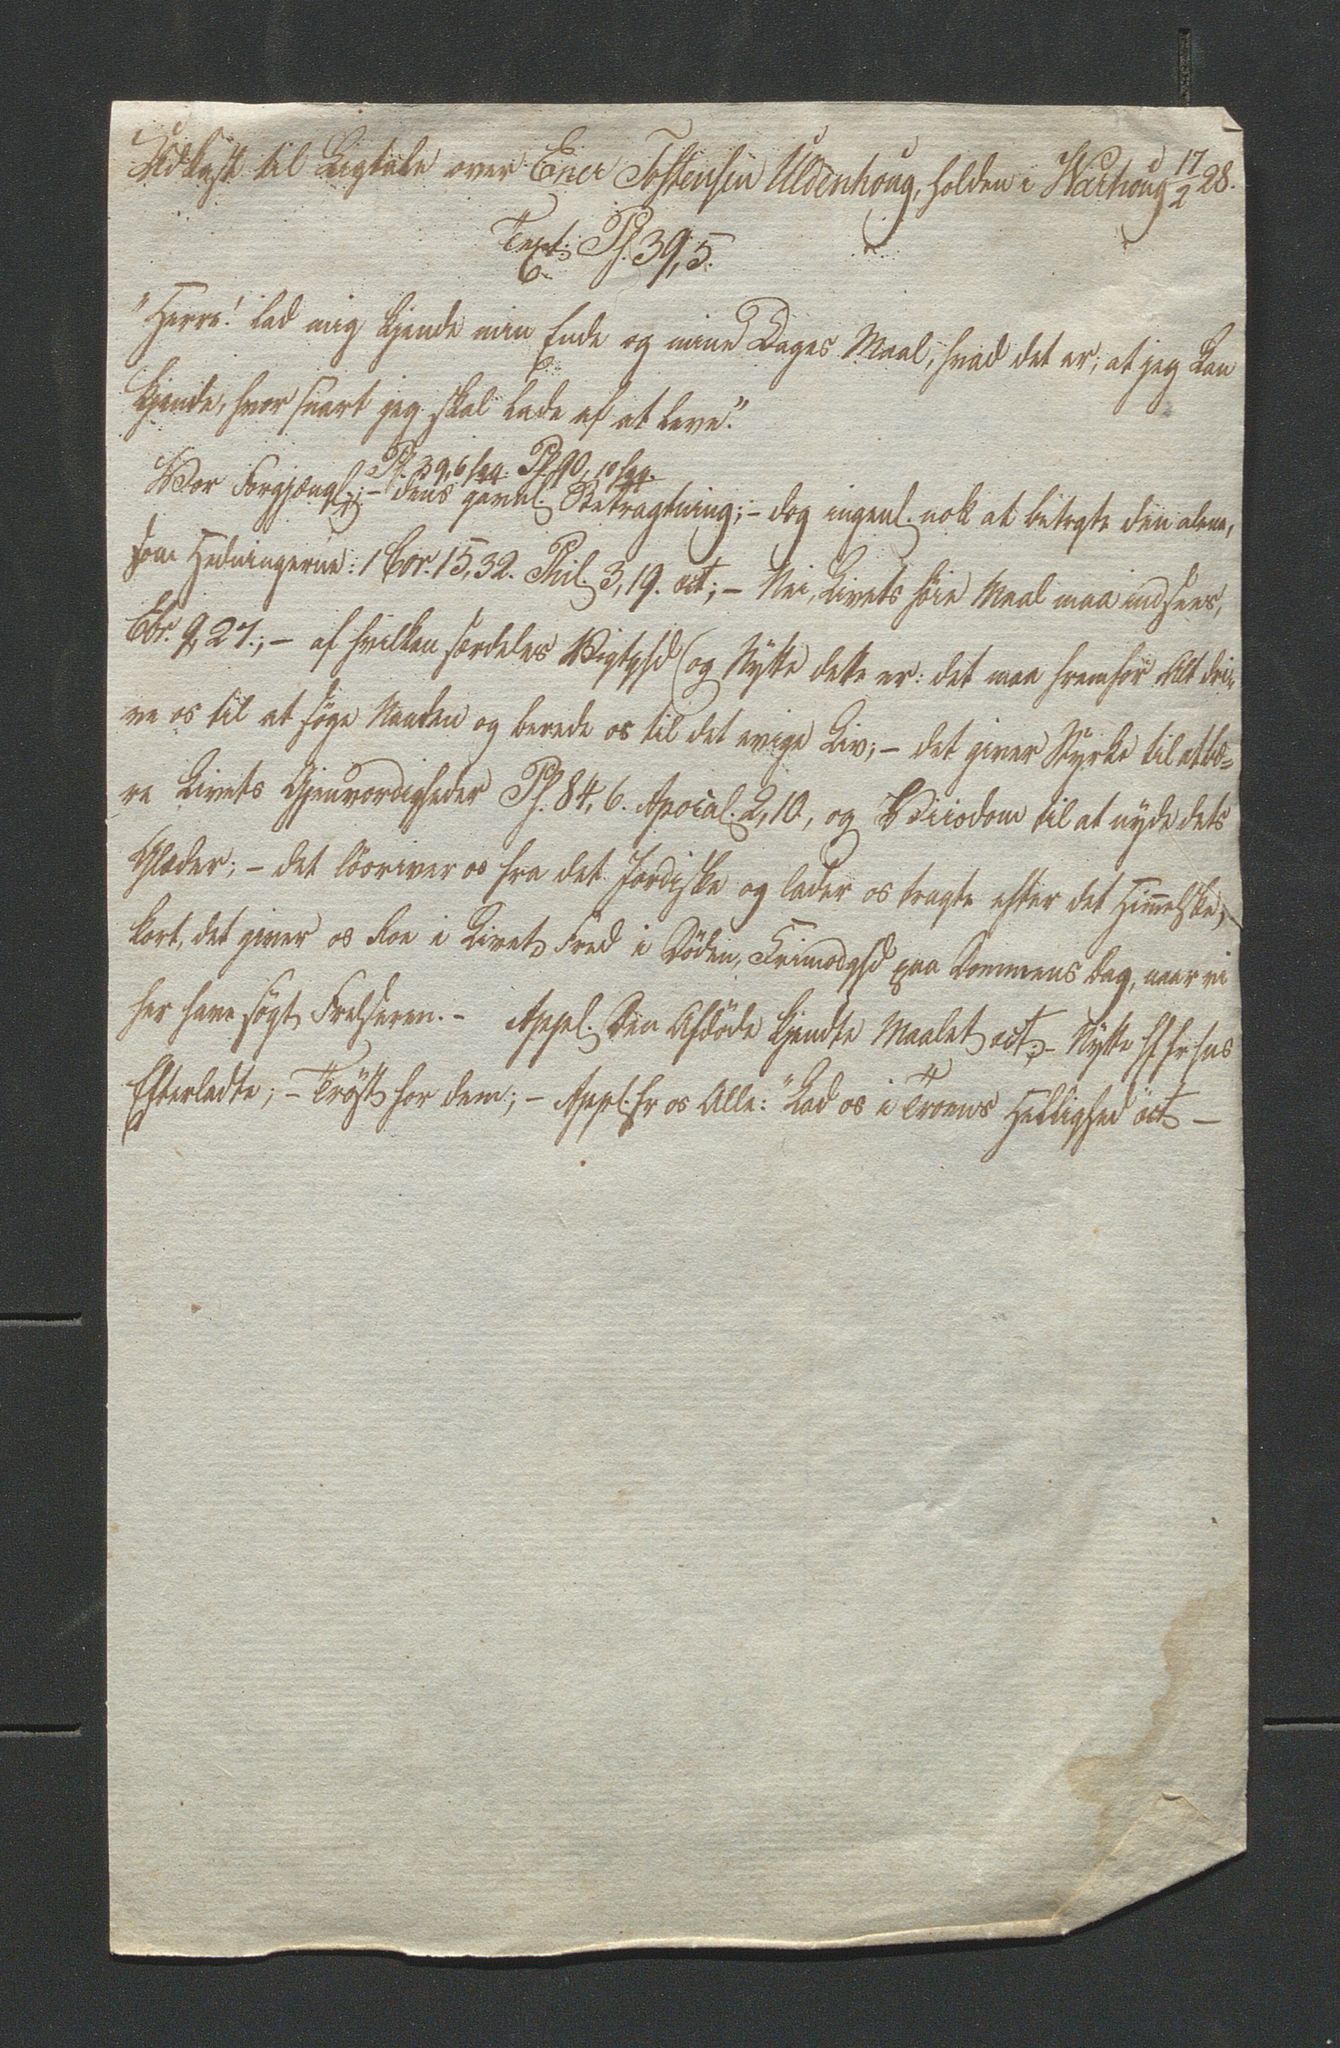 Udkast til Ligtale over Ener Tostensen Uldenhoug, holden i Warhoug 17/2 28.
Text: Ps. 39,5.
"Herre! lad mig kjende min Ende og mine Dages Maal, hvad det er; at jeg kan
kjende, hvor snart jeg skal lade af at leve."
Ps. 39,6 sqq. Ps 90, 10 sqq.
Vor Forgjængl.; - dens gavnl. Betragtning; - dog ingenl. nok at betragte den alene,
som Hedningerne: 1 Cor. 15,32. Phil. 3,19. oct; - Nei, Livets høie Maal maa indsees,
Ebr. 9,27.; - af hvilken særdeles Vigtghd og Nytte dette er: det maa fremfor Alt dri-
ve os til at søge Naaden og berede os til det evige Liv; - det giver Styrke til at bæ-
re Livets Gjenvordigheder Ps. 84,6. Apocal. 2,10, og Viisdom til at nyde dets
Glæder; - det løsriver os fra det Jordiske og lader os tragte efter det Himelske;
kort, det giver os Roe i Livet, Fred i Døden, Frimodghd paa Dommens Dag, naar vi
her have søgt Frelseren. - Appl. Den Afdøde kjendte Maalet oct, - Nytte hf. fr hs
Efterladte; - Trøst for dem; - Appl. fr os Alle: "Lad os i Troens Hellighed oct -